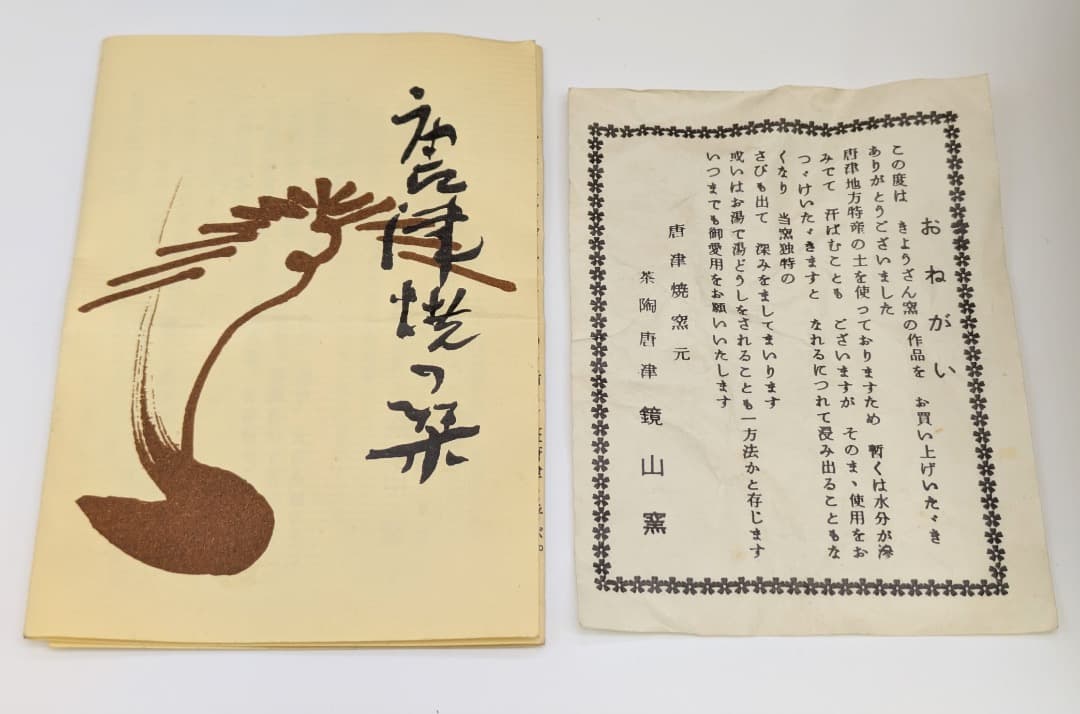 唐津焼の栞
おねがい
この度は きようざん窯の作品を お買い上げいたゞき
ありがとうございました
唐津地方特産の土を使っておりますため 暫くは水分が滲
みでて 汗ばむことも ございますが そのまゝ使用をお
つゞけいたゞきますと なれるにつれて浸み出ることもな
くなり 当窯独特の
さびも出て 深みをましてまいります
或いはお湯で湯どうしをされることも一方法かと存じます
いつまでも御愛用をお願いいたします
唐津焼窯元
茶陶唐津 鏡山窯